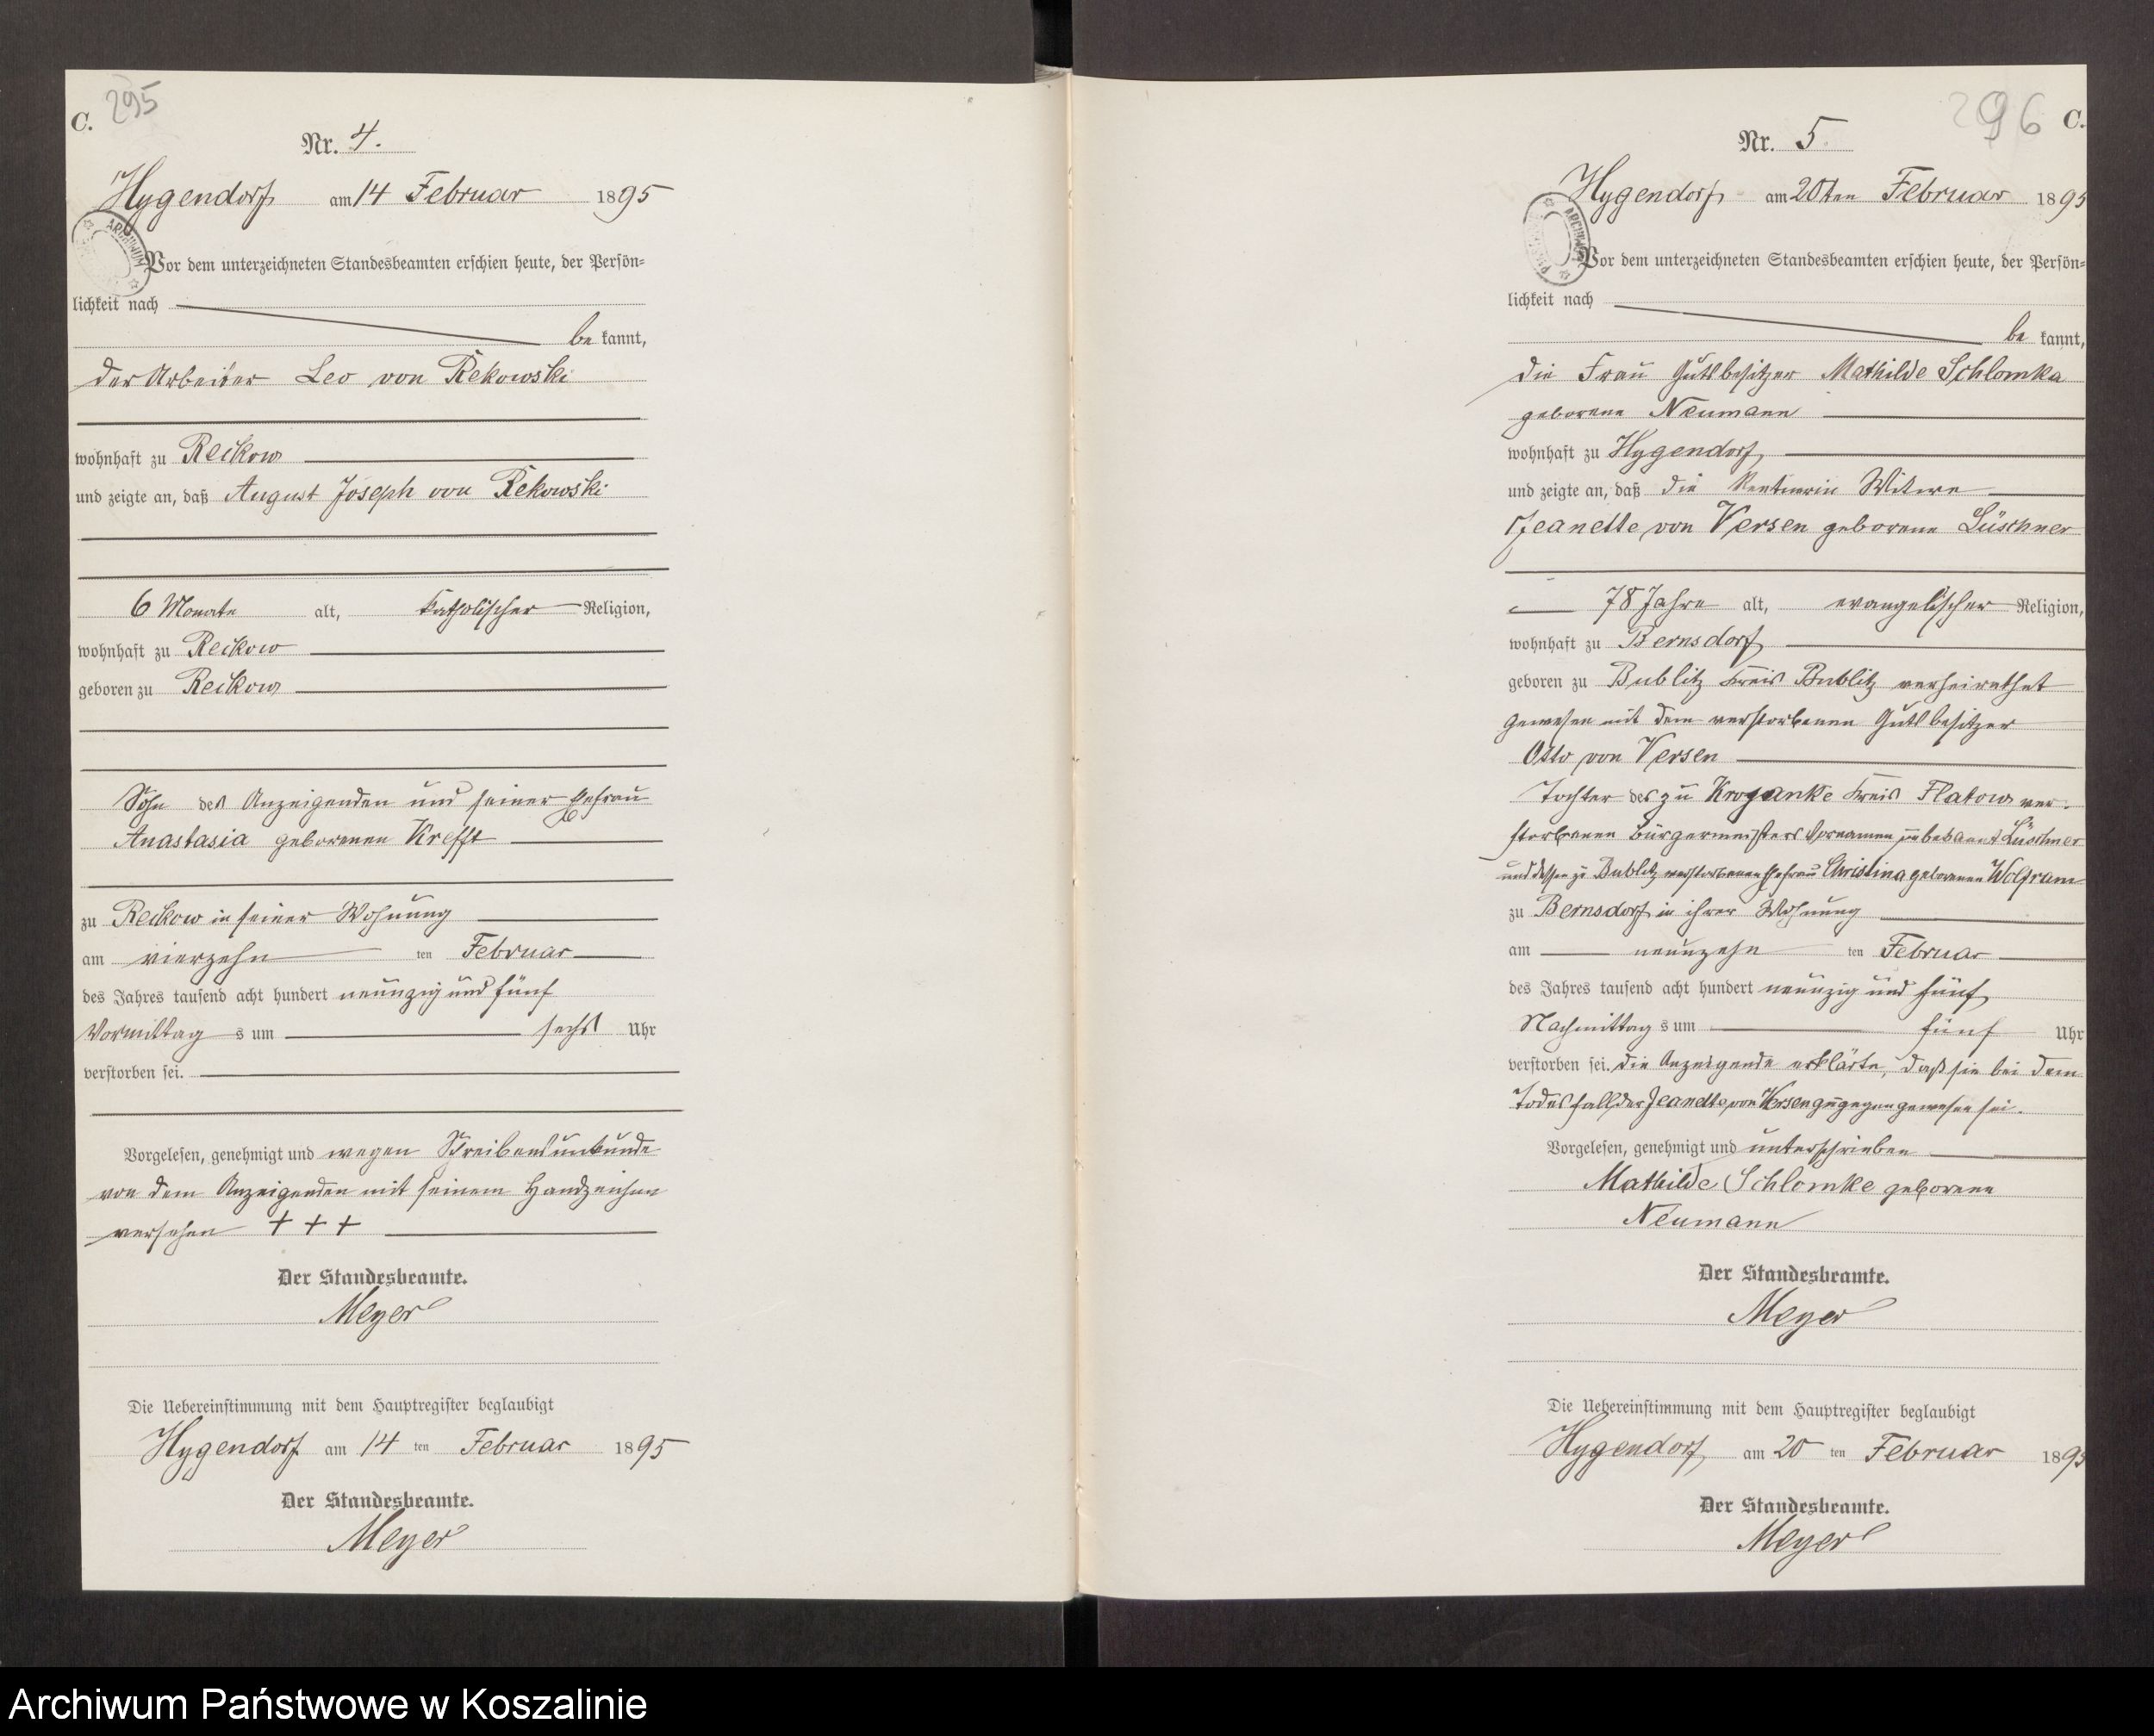 C. 295
Nr. 4.
Hygendorf am 14 Februar 1895
ARCHIWUM
Vor dem unterzeichneten Standesbeamten erschien heute, der Persön=
lichkeit nach
be kannt,
der Arbeiter Leo von Rekowski
wohnhaft zu Reckow
und zeigte an, daß August Joseph von Rekowski
6 Monate alt, katholischer Religion,
wohnhaft zu Reckow
geboren zu Reckow
Sohn des Anzeigenden und seiner Ehefrau
Anastasia geborenen Krefft
zu Reckow in seiner Wohnung
am vierzehn ten Februar
des Jahres tausend acht hundert neunzig und fünf
Vormittag s um sechs Uhr
verstorben sei.
Vorgelesen, genehmigt und wegen Schreibensunkunde
von dem Anzeigenden mit seinem Handzeichen
versehen + + +
Der Standesbeamte.
Meyer
Die Uebereinstimmung mit dem Hauptregister beglaubigt
Hygendorf am 14 ten Februar 1895
Der Standesbeamte.
Meyer
296 C.
Nr. 5.
Hygendorf am 20ten Februar 1895
ARCHIWUM
Vor dem unterzeichneten Standesbeamten erschien heute, der Persön=
lichkeit nach
be kannt,
die Frau Gutsbesitzer Mathilde Schlomka
geborene Neumann
wohnhaft zu Hygendorf
und zeigte an, daß die Rentnerin Witwe
Jeanette von Versen geborene Lüschner
78 Jahre alt, evangelischer Religion,
wohnhaft zu Bernsdorf
geboren zu Bublitz Kreis Bublitz verheirathet
gewesen mit dem verstorbenen Gutsbesitzer
Otto von Versen
Tochter des zu Krojanke Kreis Flatow ver-
storbenen Bürgermeisters Vornamen unbekannt Lüschner
und dessen zu Bublitz verstorbenen Ehefrau Christina geborenen Wolfram
zu Bernsdorf in ihrer Wohnung
am neunzehn ten Februar
des Jahres tausend acht hundert neunzig und fünf
Nachmittag s um fünf Uhr
verstorben sei. Die Anzeigende erklärte, daß sie bei dem
Todesfall der Jeanette von Versen zugegen gewesen sei.
Vorgelesen, genehmigt und unterschrieben
Mathilde Schlomke geborene
Neumann
Der Standesbeamte.
Meyer
Die Uebereinstimmung mit dem Hauptregister beglaubigt
Hygendorf, am 20 ten Februar 1895
Der Standesbeamte.
Meyer
Archiwum Państwowe w Koszalinie